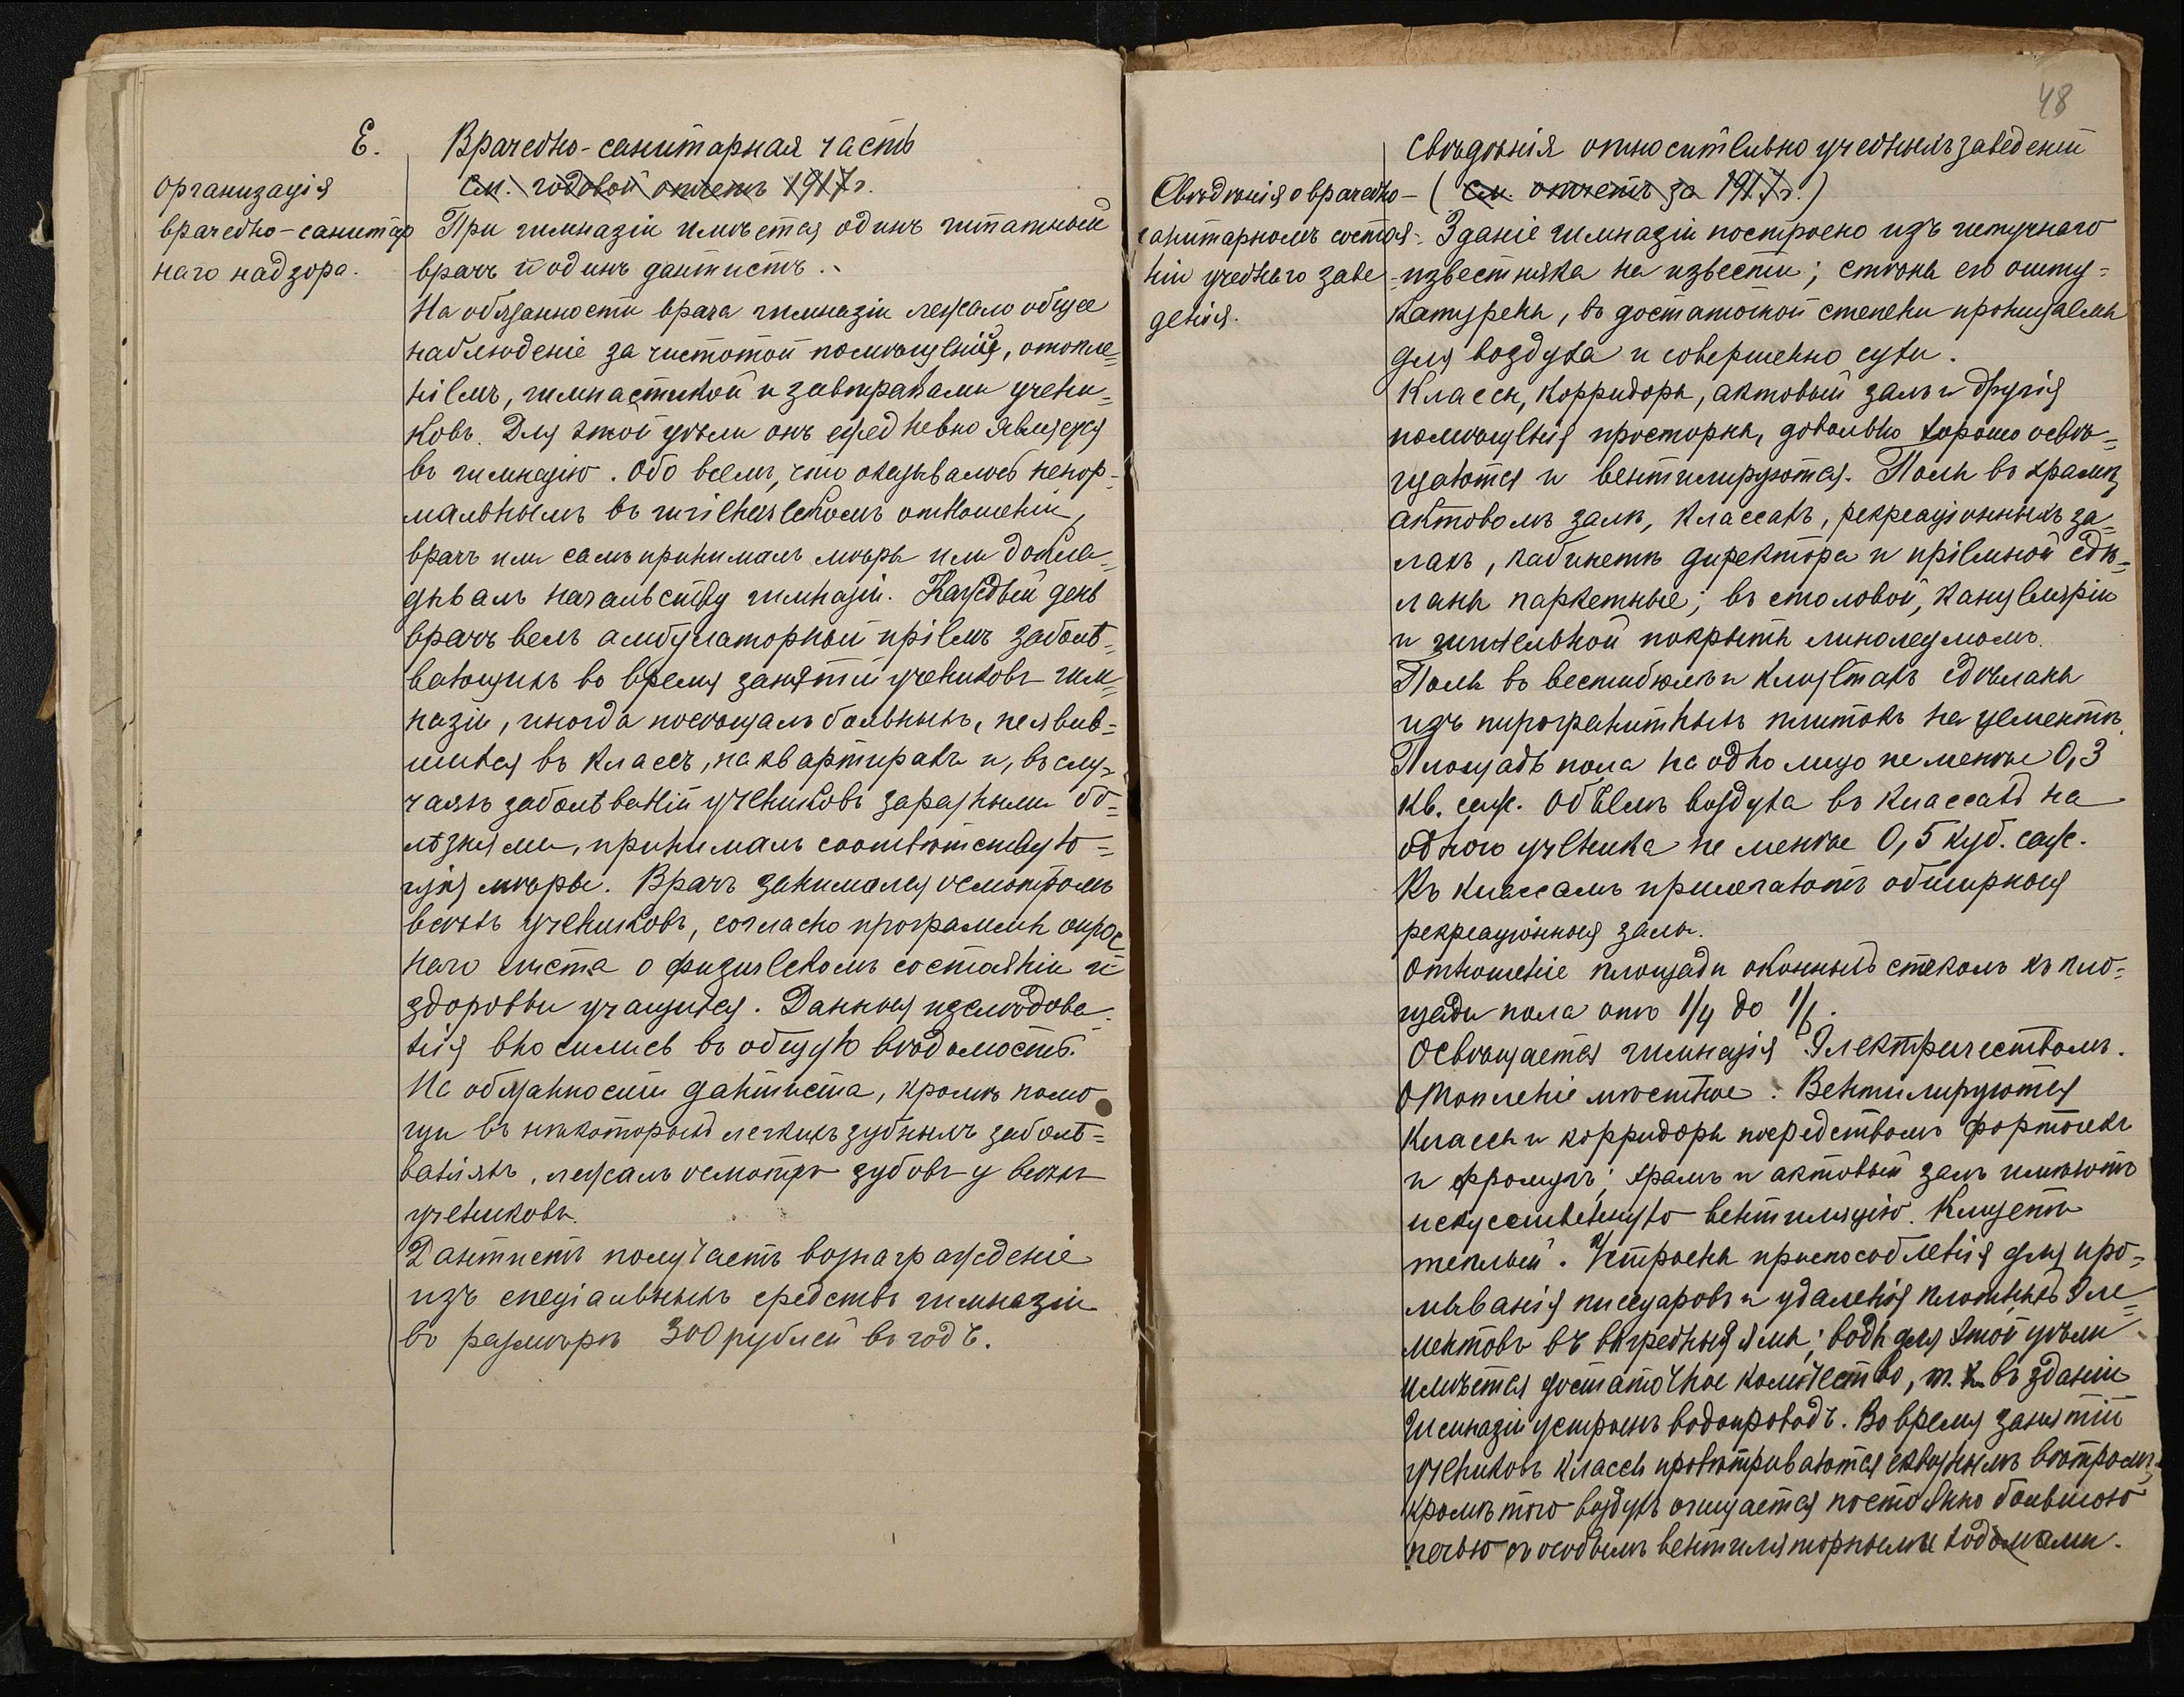 Е. Врачебно-санитарная часть
Организація
врачебно-санитар
наго надзора.
См. годовой отчетъ 1917 г.
При гимназіи имѣется одинъ штатный
врачъ и одинъ дантистъ.
На обязанности врача гимназіи лежало общее
наблюденіе за чистотой помѣщеній, отопле=
ніемъ, гимнастикой и завтраками учени=
ковъ. Для этой цѣли онъ ежедневно являлся
въ гимназію. Обо всемъ, что оказывалось ненор=
мальнымъ въ гигіеническомъ отношеніи,
врачъ или самъ принималъ мѣры или докла=
дывалъ начальству гимназіи. Каждый день
врачъ велъ амбулаторный пріемъ заболѣ=
вающихъ во время занятій учениковъ гим=
назіи, иногда посѣщалъ больныхъ, неявив=
шихся въ классъ, на квартирахъ и, въ слу=
чаяхъ заболѣваній учениковъ заразными бо=
лѣзнями, принималъ соотвѣтствую=
щія мѣры. Врачъ занимался осмотромъ
всѣхъ учениковъ, согласно программы опрос
наго листа о физическомъ состояніи и
здоровьи учащихся. Данныя изслѣдова=
нія вносились въ общую вѣдомость.
На обязанности дантиста, кромѣ помо
щи въ нѣкоторыхъ легкихъ зубныхъ заболѣ=
ваніяхъ, лежалъ осмотръ зубовъ у всѣхъ
учениковъ.
Дантистъ получаетъ вознагражденіе
изъ спеціальныхъ средствъ гимназіи
въ размѣрѣ 300 рублей въ годъ.
48
Свѣдѣнія относительно учебныхъ заведеній
Свѣдѣнія о врачебно-
санитарномъ состоя-
ніи учебнаго заве
денія.
(См. отчетъ за 1917 г.)
Зданіе гимназіи построено изъ штучнаго
известняка на извести; стѣны его ошту=
катурены, въ достаточной степени проницаемы
для воздуха и совершенно сухи.
Классы, корридоры, актовый залъ и другія
помѣщенія просторны, довольно хорошо освѣ=
щаются и вентилируются. Полы въ храмѣ,
актовомъ залѣ, классахъ, рекреаціонныхъ за=
лахъ, кабинетѣ директора и пріемной сдѣ=
ланы паркетные; въ столовой, канцеляріи
и учительской покрыты линолеумомъ.
Полы въ вестибюлѣ и клозетахъ сдѣланы
изъ пирогранитныхъ плитокъ на цементѣ.
Площадь пола на одно лицо не менѣе 0,3
кв. саж. Объемъ воздуха въ классахъ на
одного ученика не менѣе 0,5 куб. саж.
Къ классамъ прилегаютъ обширныя
рекреаціонныя залы.
Отношеніе площади оконныхъ стеколъ къ пло=
щади пола отъ 1/4 до 1/6.
Освѣщается гимназія Электричествомъ.
Отопленіе мѣстное. Вентилируются
классы и корридоры посредствомъ форточекъ
и фромугъ; храмъ и актовый залъ имѣютъ
искусственную вентиляцію. Клозеты
теплые. Устроены приспособленія для про=
мыванія писсуаровъ и удаленія плотныхъ эле=
ментовъ въ выгребныя ямы; воды для этой цѣли
имѣется достаточное количество, т. к. въ зданіи
гимназіи устроенъ водопроводъ. Во время занятій
учениковъ классы провѣтриваются сквознымъ вѣтромъ,
кромѣ того воздухъ очищается постоянно большою
печью съ особыми вентиляторными ходами.